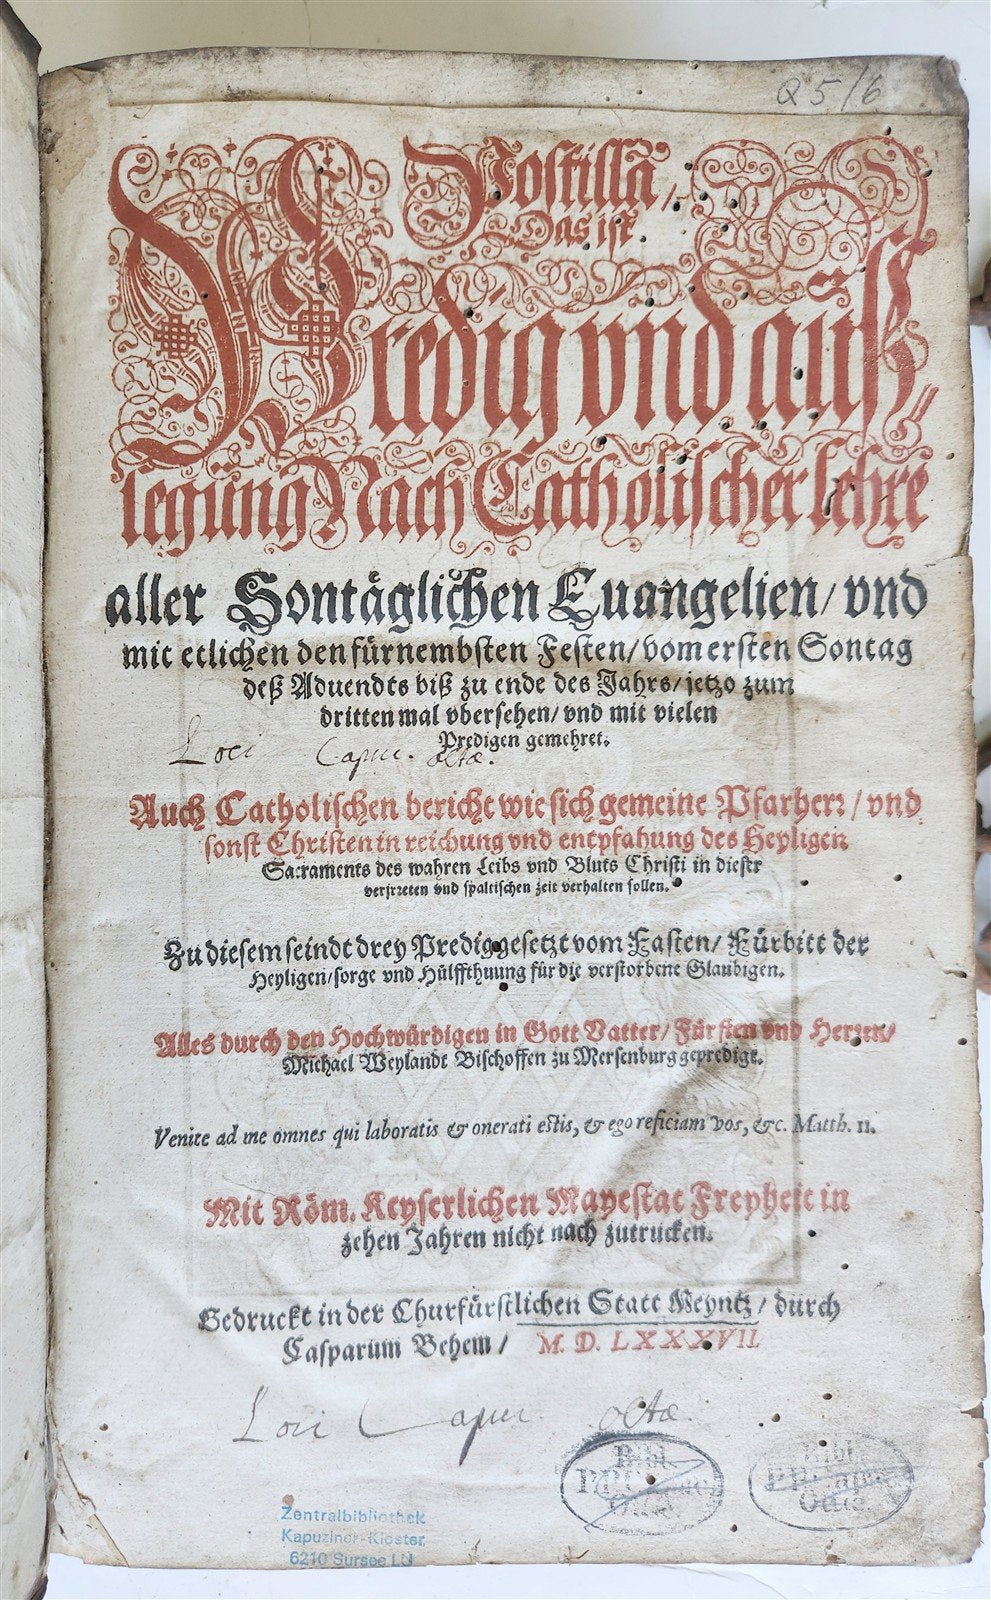 Q 5/6
Postilla,
Das ist
Predig vnd auß-
legung Nach Catholischer lehre
aller Sontäglichen Euangelien/ vnd
mit etlichen den fürnembsten Festen/ vom ersten Sontag
deß Aduendts biß zu ende des Jahrs/ jetzo zum
dritten mal vbersehen/ vnd mit vielen
Predigen gemehret.
Loci Capuc. oltæ.
Auch Catholischen bericht wie sich gemeine Pfarherr/ vnd
sonst Christen in reichung vnd entpfahung des Heyligen
Sacraments des wahren Leibs vnd Bluts Christi in dieser
verjrreten vnd spaltischen zeit verhalten sollen.
Zu diesem seindt drey Predig gesetzt vom Fasten/ Fürbitt der
Heyligen/ sorge vnd Hülffthuung für die verstorbene Glaubigen.
Alles durch den Hochwürdigen in Gott Vatter/ Fürsten vnd Herren/
Michael Weylandt Bischoffen zu Mersenburg gepredigt.
Venite ad me omnes qui laboratis & onerati estis, & ego reficiam vos, &c. Matth. 11.
Mit Röm. Keyserlichen Mayestat Freyheit in
zehen Jahren nicht nach zutrucken.
Gedruckt in der Churfürstlichen Statt Meyntz/ durch
Casparum Behem/ M. D. LXXXVII.
Loci Capuc. oltæ.
Bibl.
Bibl.
Zentralbibliothek
Kapuziner-Kloster,
6210 Sursee LU